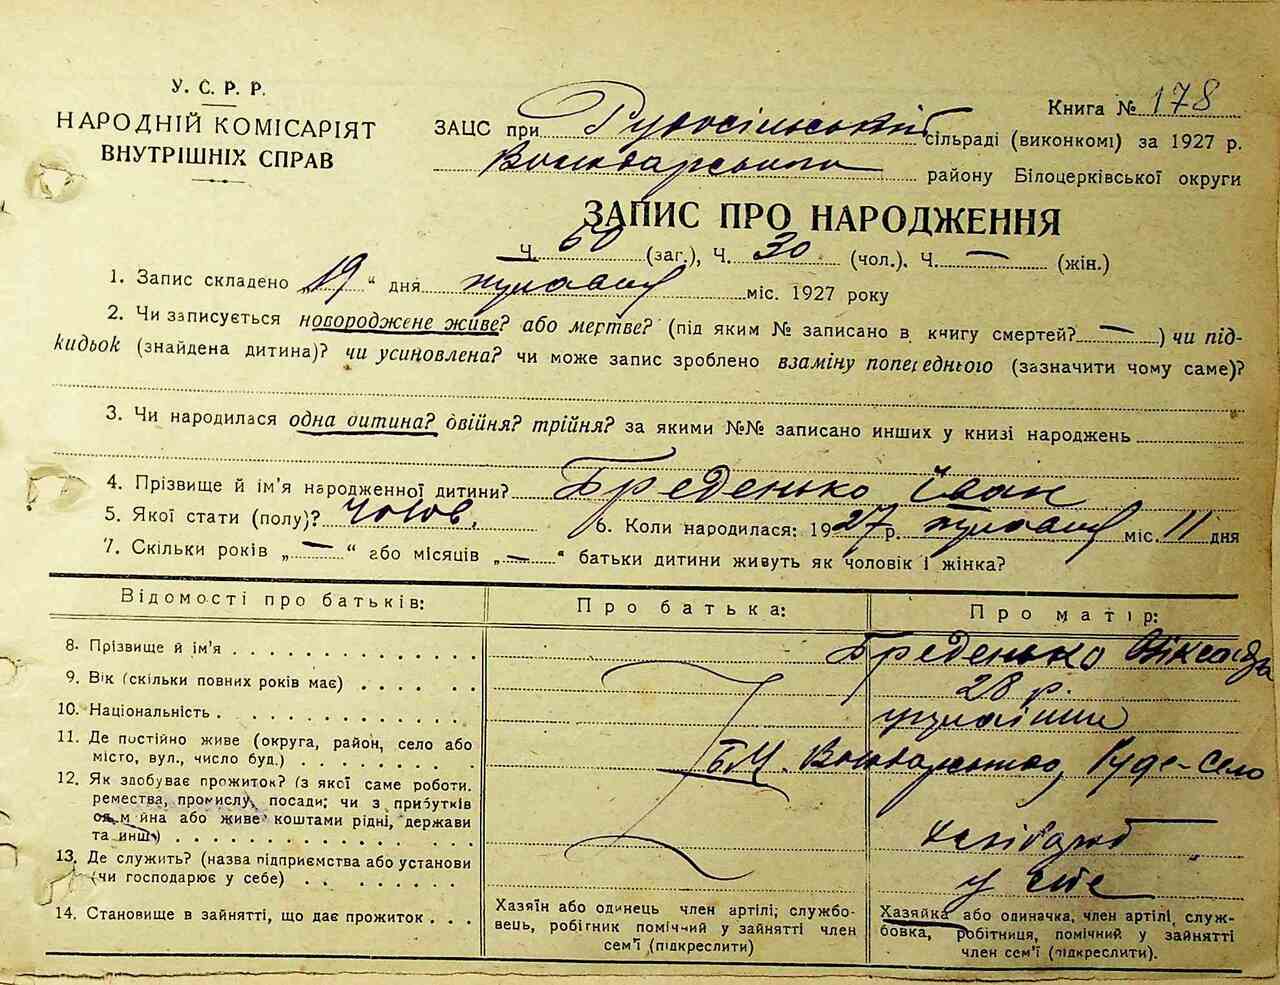 У. С. Р. Р.
НАРОДНІЙ КОМІСАРІЯТ
ВНУТРІШНІХ СПРАВ
Книга № 178
ЗАЦС при Рудосільський сільраді (виконкомі) за 1927 р.
Володарського району Білоцерківської округи
ЗАПИС ПРО НАРОДЖЕННЯ
Ч. 60 (заг.), Ч. 30 (чол.). Ч. — (жін.)
1. Запис складено „19“ дня міс. 1927 року
2. Чи записується новороджене живе? або мертве? (під яким № записано в книгу смертей? — ) чи під-
кидьок (знайдена дитина)? чи усиновлена? чи може запис зроблено взаміну попереднього (зазначити чому саме)?
3. Чи народилася одна дитина? двійня? трійня? за якими №№ записано инших у книзі народжень
4. Прізвище й ім'я народженної дитини? Бреденько Іван
5. Якої стати (полу)? чолов. 6. Коли народилася: 1927 р. міс. 11 дня
7. Скільки років „—“ або місяців „—“ батьки дитини живуть як чоловік і жінка?
Відомості про батьків: Про батька: Про матір:
8. Прізвище й ім'я Бреденько
9. Вік (скільки повних років має) 28 р.
10. Національність українка
11. Де постійно живе (округа, район, село або
місто, вул., число буд.) БЦ. Володарського, Руде-Село
12. Як здобуває прожиток? (з якої саме роботи.
ремества, промислу, посади; чи з прибутків
од майна або живе коштами рідні, держави
та инш.) хлібороб
13. Де служить? (назва підприємства або установи
(чи господарює у себе) у себе
14. Становище в зайнятті, що дає прожиток
Хазяїн або одинець член артілі; службо-
вець, робітник помічний у зайнятті член
сем'ї (підкреслити)
Хазяйка або одиначка, член артілі, служ-
бовка, робітниця, помічний у зайнятті
член сем'ї (підкреслити).